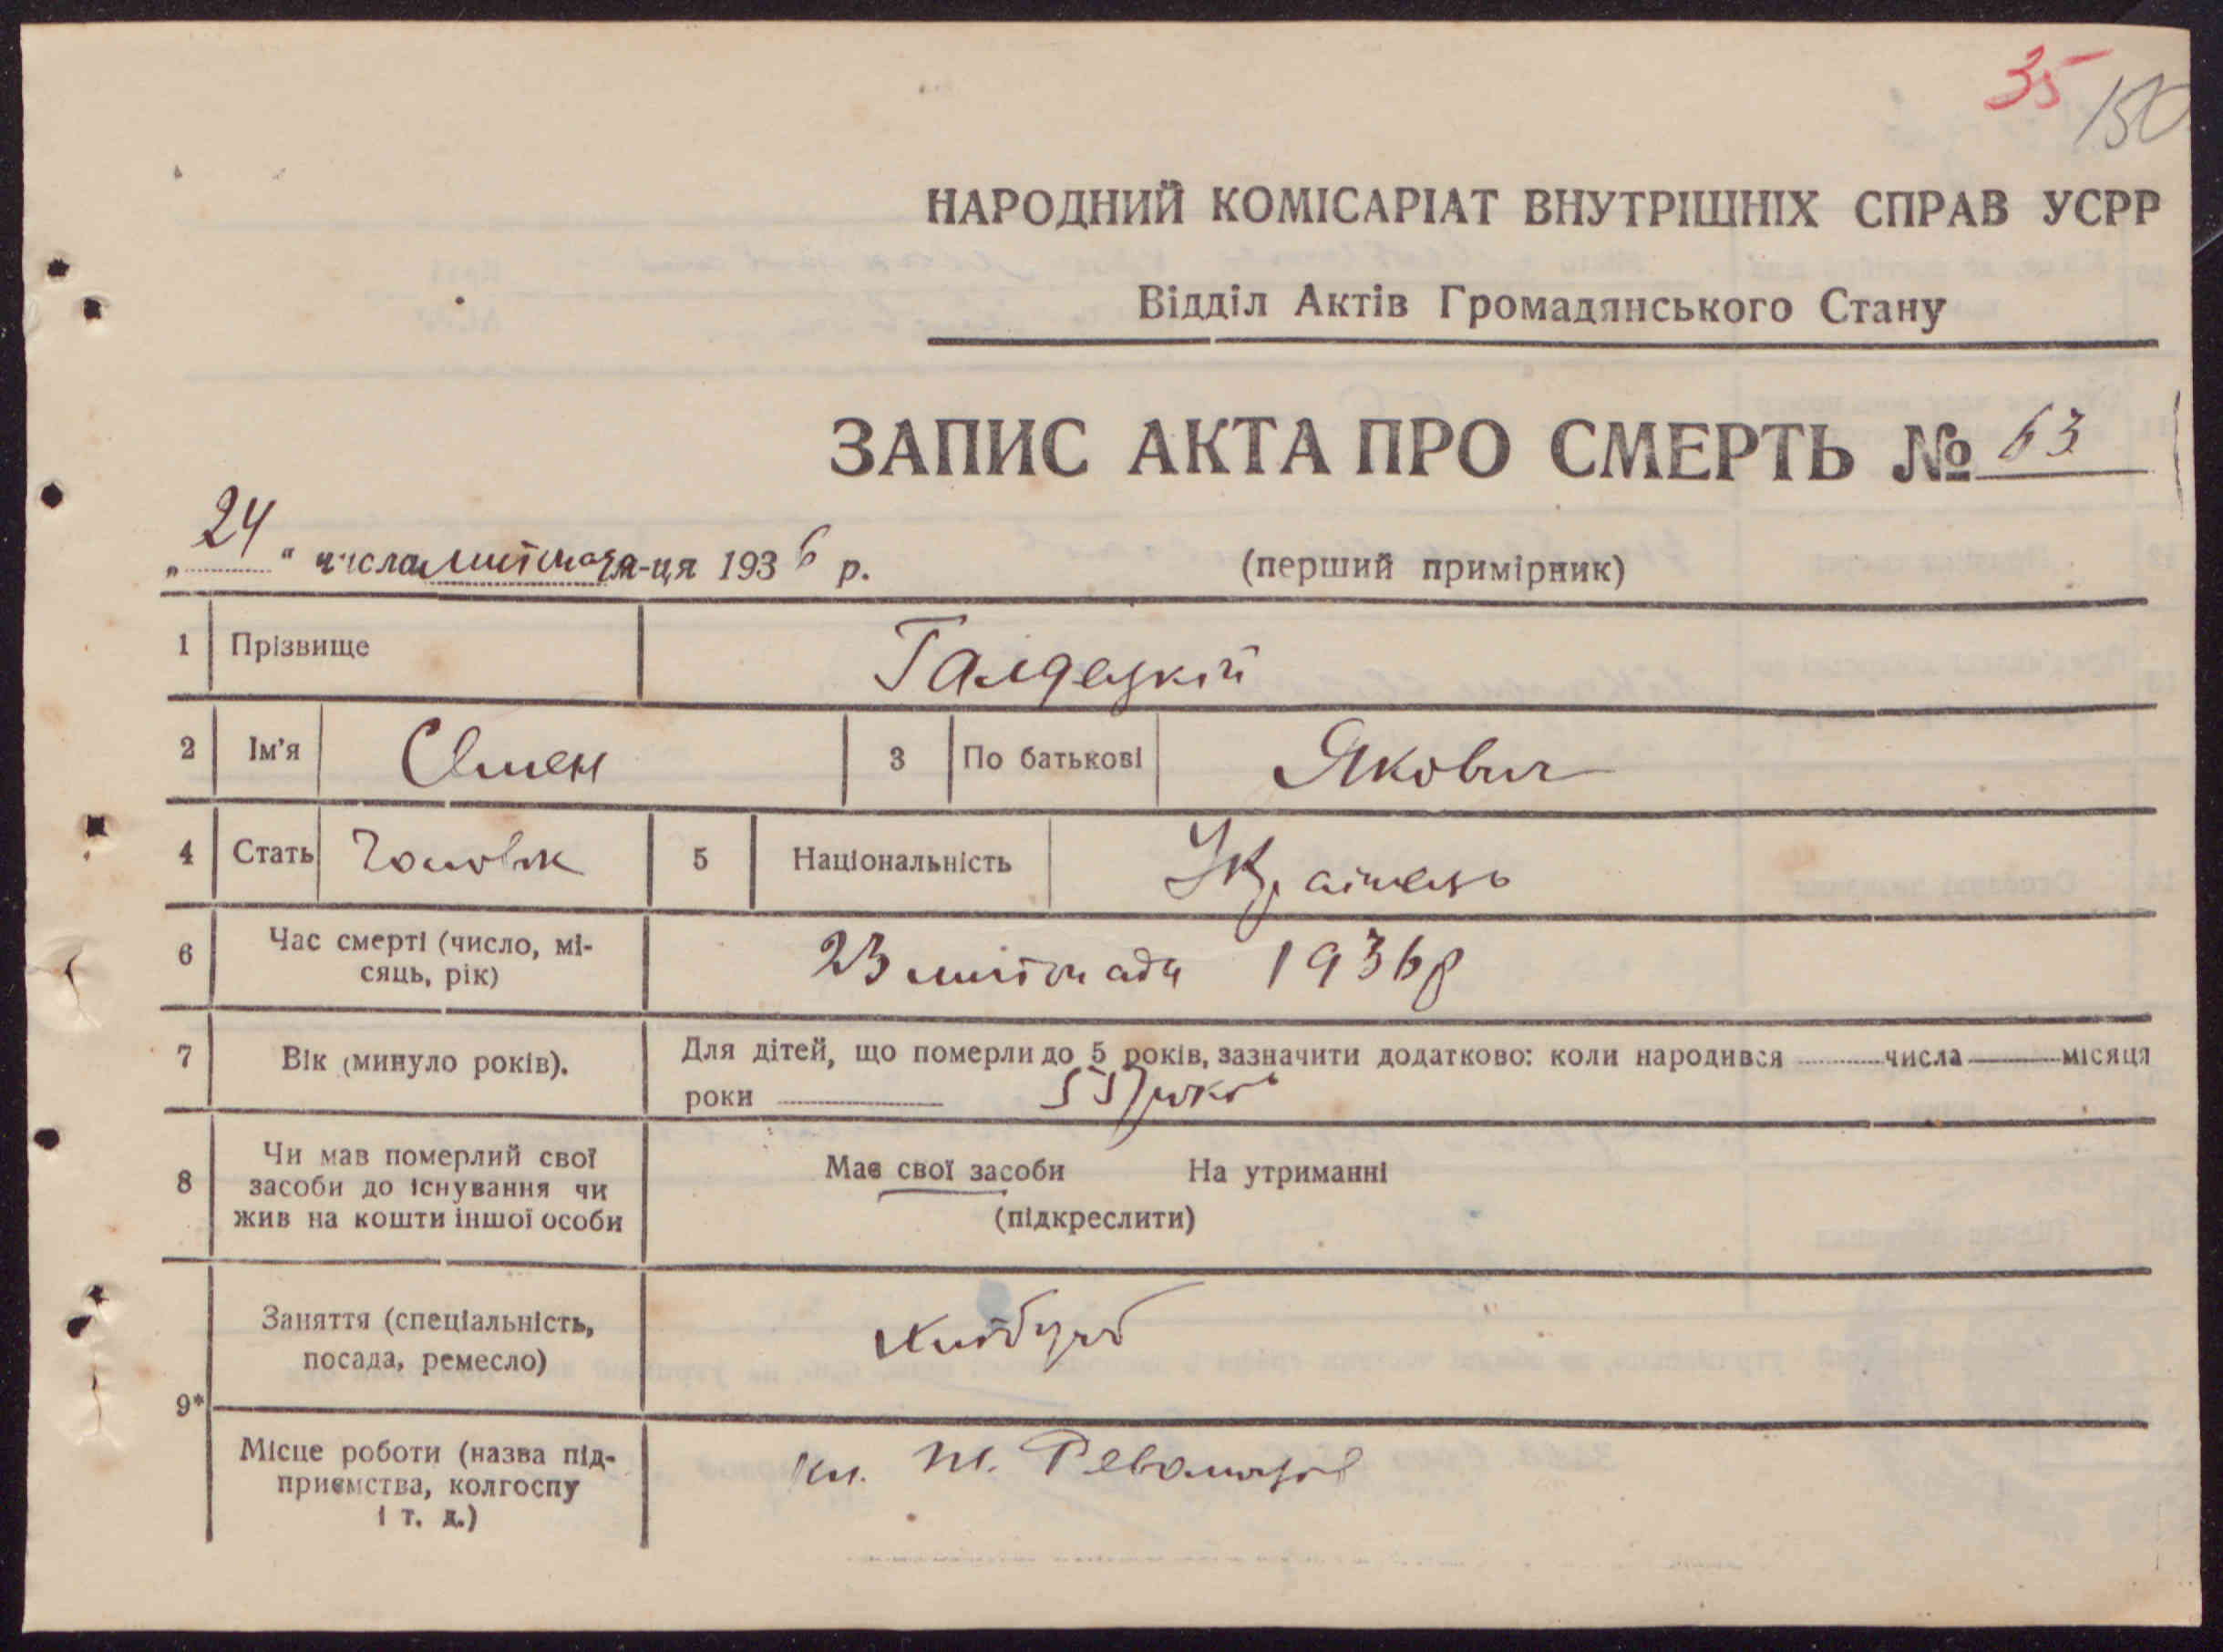 35
150
НАРОДНИЙ КОМІСАРІАТ ВНУТРІШНІХ СПРАВ УСРР
Відділ Актів Громадянського Стану
ЗАПИС АКТА ПРО СМЕРТЬ № 63
„24“ числа листопада м-ця 1936 р. (перший примірник)
1 Прізвище Галдецкій
2 Ім'я Семен 3 По батькові Якович
4 Стать Чоловік 5 Національність Українець
6 Час смерті (число, мі-
сяць, рік) 23 листопада 1936 р
7 Вік (минуло років). Для дітей, що померли до 5 років, зазначити додатково: коли народився числа місяця
роки 55 років
8 Чи мав померлий свої
засоби до існування чи
жив на кошти іншої особи
Має свої засоби На утриманні
(підкреслити)
9* Заняття (спеціальність,
посада, ремесло) хлібороб
Місце роботи (назва під-
приємства, колгоспу
і т. д.)